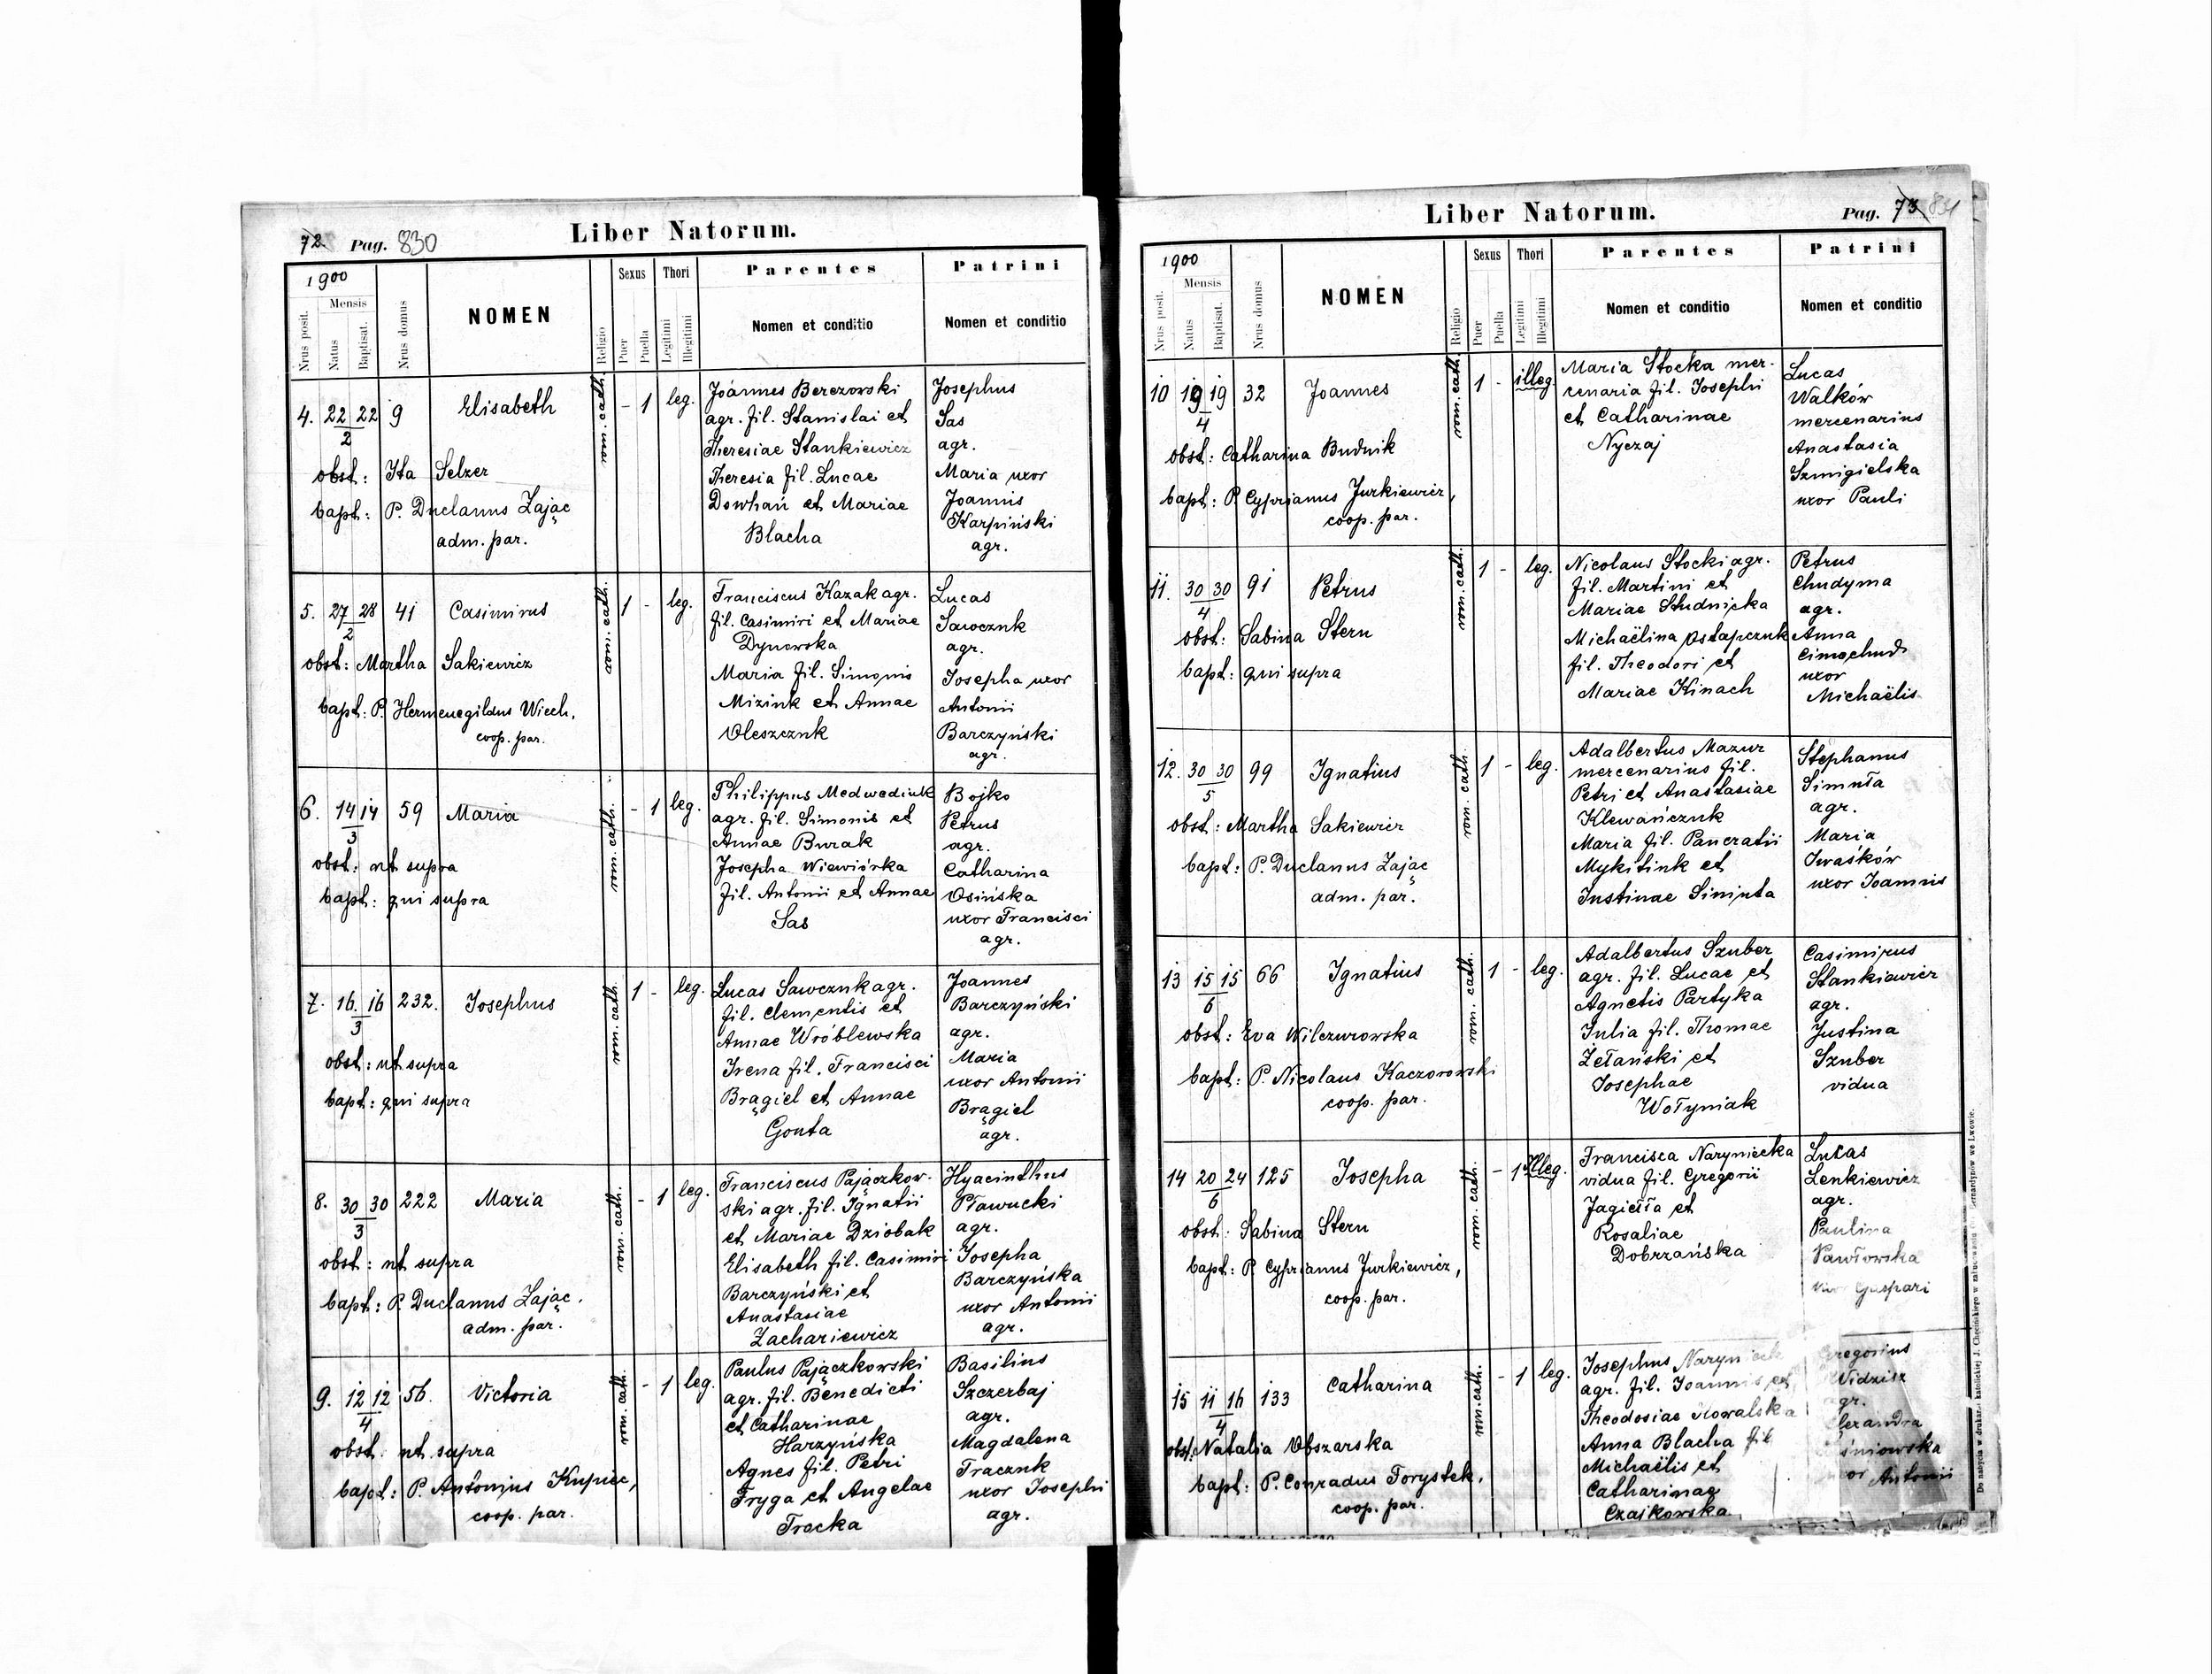 72. Pag. 830
Liber Natorum.
1900
Nrus posit.
Mensis
Natus
Baptisat.
Nrus domus
NOMEN
Religio
Sexus
Puer
Puella
Thori
Legitimi
Illegitimi
Parentes
Nomen et conditio
Patrini
Nomen et conditio
4. 22 22 9 Elisabeth
2
obst: Ita Selzer
bapt: P. Duclanus Zając
adm. par.
rom. cath.
- 1 leg.
Joannes Berezowski
agr. fil. Stanislai et
Theresiae Stankiewicz
Theresia fil. Lucae
Dowhań et Mariae
Blacha
Josephus
Sas
agr.
Maria uxor
Joannis
Karpiński
agr.
5. 27 28 41 Casimirus
2
obst: Martha Sakiewicz
bapt: P. Hermenegildus Wiech,
coop. par.
rom. cath.
1 - leg.
Franciscus Kazak agr.
fil. Casimiri et Mariae
Dynowska
Maria fil. Simonis
Miziuk et Annae
Oleszczuk
Lucas
Sawczuk
agr.
Josepha uxor
Antonii
Barczyński
agr.
6. 14 14 59 Maria
3
obst: ut supra
bapt: qui supra
rom. cath.
- 1 leg.
Philippus Medwediuk
agr. fil. Simonis et
Annae Burak
Josepha Wiewiórka
fil. Antonii et Annae
Sas
Bojko
Petrus
agr.
Catharina
Osińska
uxor Francisci
agr.
7. 16. 16 232. Josephus
3
obst: ut supra
bapt: qui supra
rom. cath.
1 - leg.
Lucas Sawczuk agr.
fil. Clementis et
Annae Wróblewska
Irena fil. Francisci
Brągiel et Annae
Gonta
Joannes
Barczyński
agr.
Maria
uxor Antonii
Brągiel
agr.
8. 30 30 222 Maria
3
obst: ut supra
bapt: P. Duclanus Zając.
adm. par.
rom. cath.
- 1 leg.
Franciscus Pajączkow-
ski agr. fil. Ignatii
et Mariae Dziobak
Elisabeth fil. Casimiri
Barczyński et
Anastasiae
Zachariewicz
Hyacinthus
Pławucki
agr.
Josepha
Barczyńska
uxor Antonii
agr.
9. 12 12 56. Victoria
4
obst. ut supra
bapt: P. Antonius Kupiec,
coop. par.
rom. cath.
- 1 leg.
Paulus Pajączkowski
agr. fil. Benedicti
et Catharinae
Harzyńska
Agnes fil. Petri
Fryga et Angelae
Trocka
Basilius
Szczerbaj
agr.
Magdalena
Traczuk
uxor Josephi
agr.
Liber Natorum.
Pag. 73
1900
Nrus posit.
Mensis
Natus
Baptisat.
Nrus domus
NOMEN
Religio
Sexus
Puer
Puella
Thori
Legitimi
Illegitimi
Parentes
Nomen et conditio
Patrini
Nomen et conditio
10 19 19 32 Joannes
4
obst: Catharina Budnik
bapt: P. Cyprianus Jurkiewicz,
coop. par.
rom. cath.
1 - illeg.
Maria Stocka mer-
cenaria fil. Josephi
et Catharinae
Nyczaj
Lucas
Walków
mercenarius
Anastasia
Szmigielska
uxor Pauli
11. 30 30 91 Petrus
4
obst: Sabina Stern
bapt: qui supra
rom. cath.
1 - leg.
Nicolaus Stocki agr.
fil. Martini et
Mariae Studnicka
Michaëlina Ostapczuk
fil. Theodori et
Mariae Kinach
Petrus
Chudyma
agr.
Anna
Cimochud
uxor
Michaëlis
12. 30 30 99 Ignatius
5
obst: Martha Sakiewicz
bapt: P. Duclanus Zając
adm. par.
rom. cath.
1 - leg.
Adalbertus Mazur
mercenarius fil.
Petri et Anastasiae
Klewańczuk
Maria fil. Pancratii
Mykitiuk et
Justinae Simuta
Stephanus
Simuła
agr.
Maria
Iwaśków
uxor Joannis
13 15 15 66 Ignatius
6
obst: Eva Wilczurowska
bapt: P. Nicolaus Kaczorowski
coop. par.
rom. cath.
1 - leg.
Adalbertus Szuber
agr. fil. Lucae et
Agnetis Partyka
Julia fil. Thomae
Zełański et
Josephae
Wołyniak
Casimirus
Stankiewicz
agr.
Justina
Szuber
vidua
14 20 24 125 Josepha
6
obst: Sabina Stern
bapt: P. Cyprianus Jurkiewicz,
coop. par.
rom. cath.
- 1 Illeg.
Francisca Naryniecka
vidua fil. Gregorii
Jagiełła et
Rosaliae
Dobrzańska
Lucas
Lenkiewicz
agr.
Paulina
Pawłowska
Gaspari
15 11 16 133 Catharina
4
obst: Natalia Obszarska
bapt: P. Conradus Forystek,
coop. par.
rom. cath.
- 1 leg.
Josephus
agr. fil. Joannis et
Theodosiae Kowalska
Anna Blacha fil
Michaëlis et
Catharinae
Czajkowska
Gregorius
Widzisz
agr.
Antonii